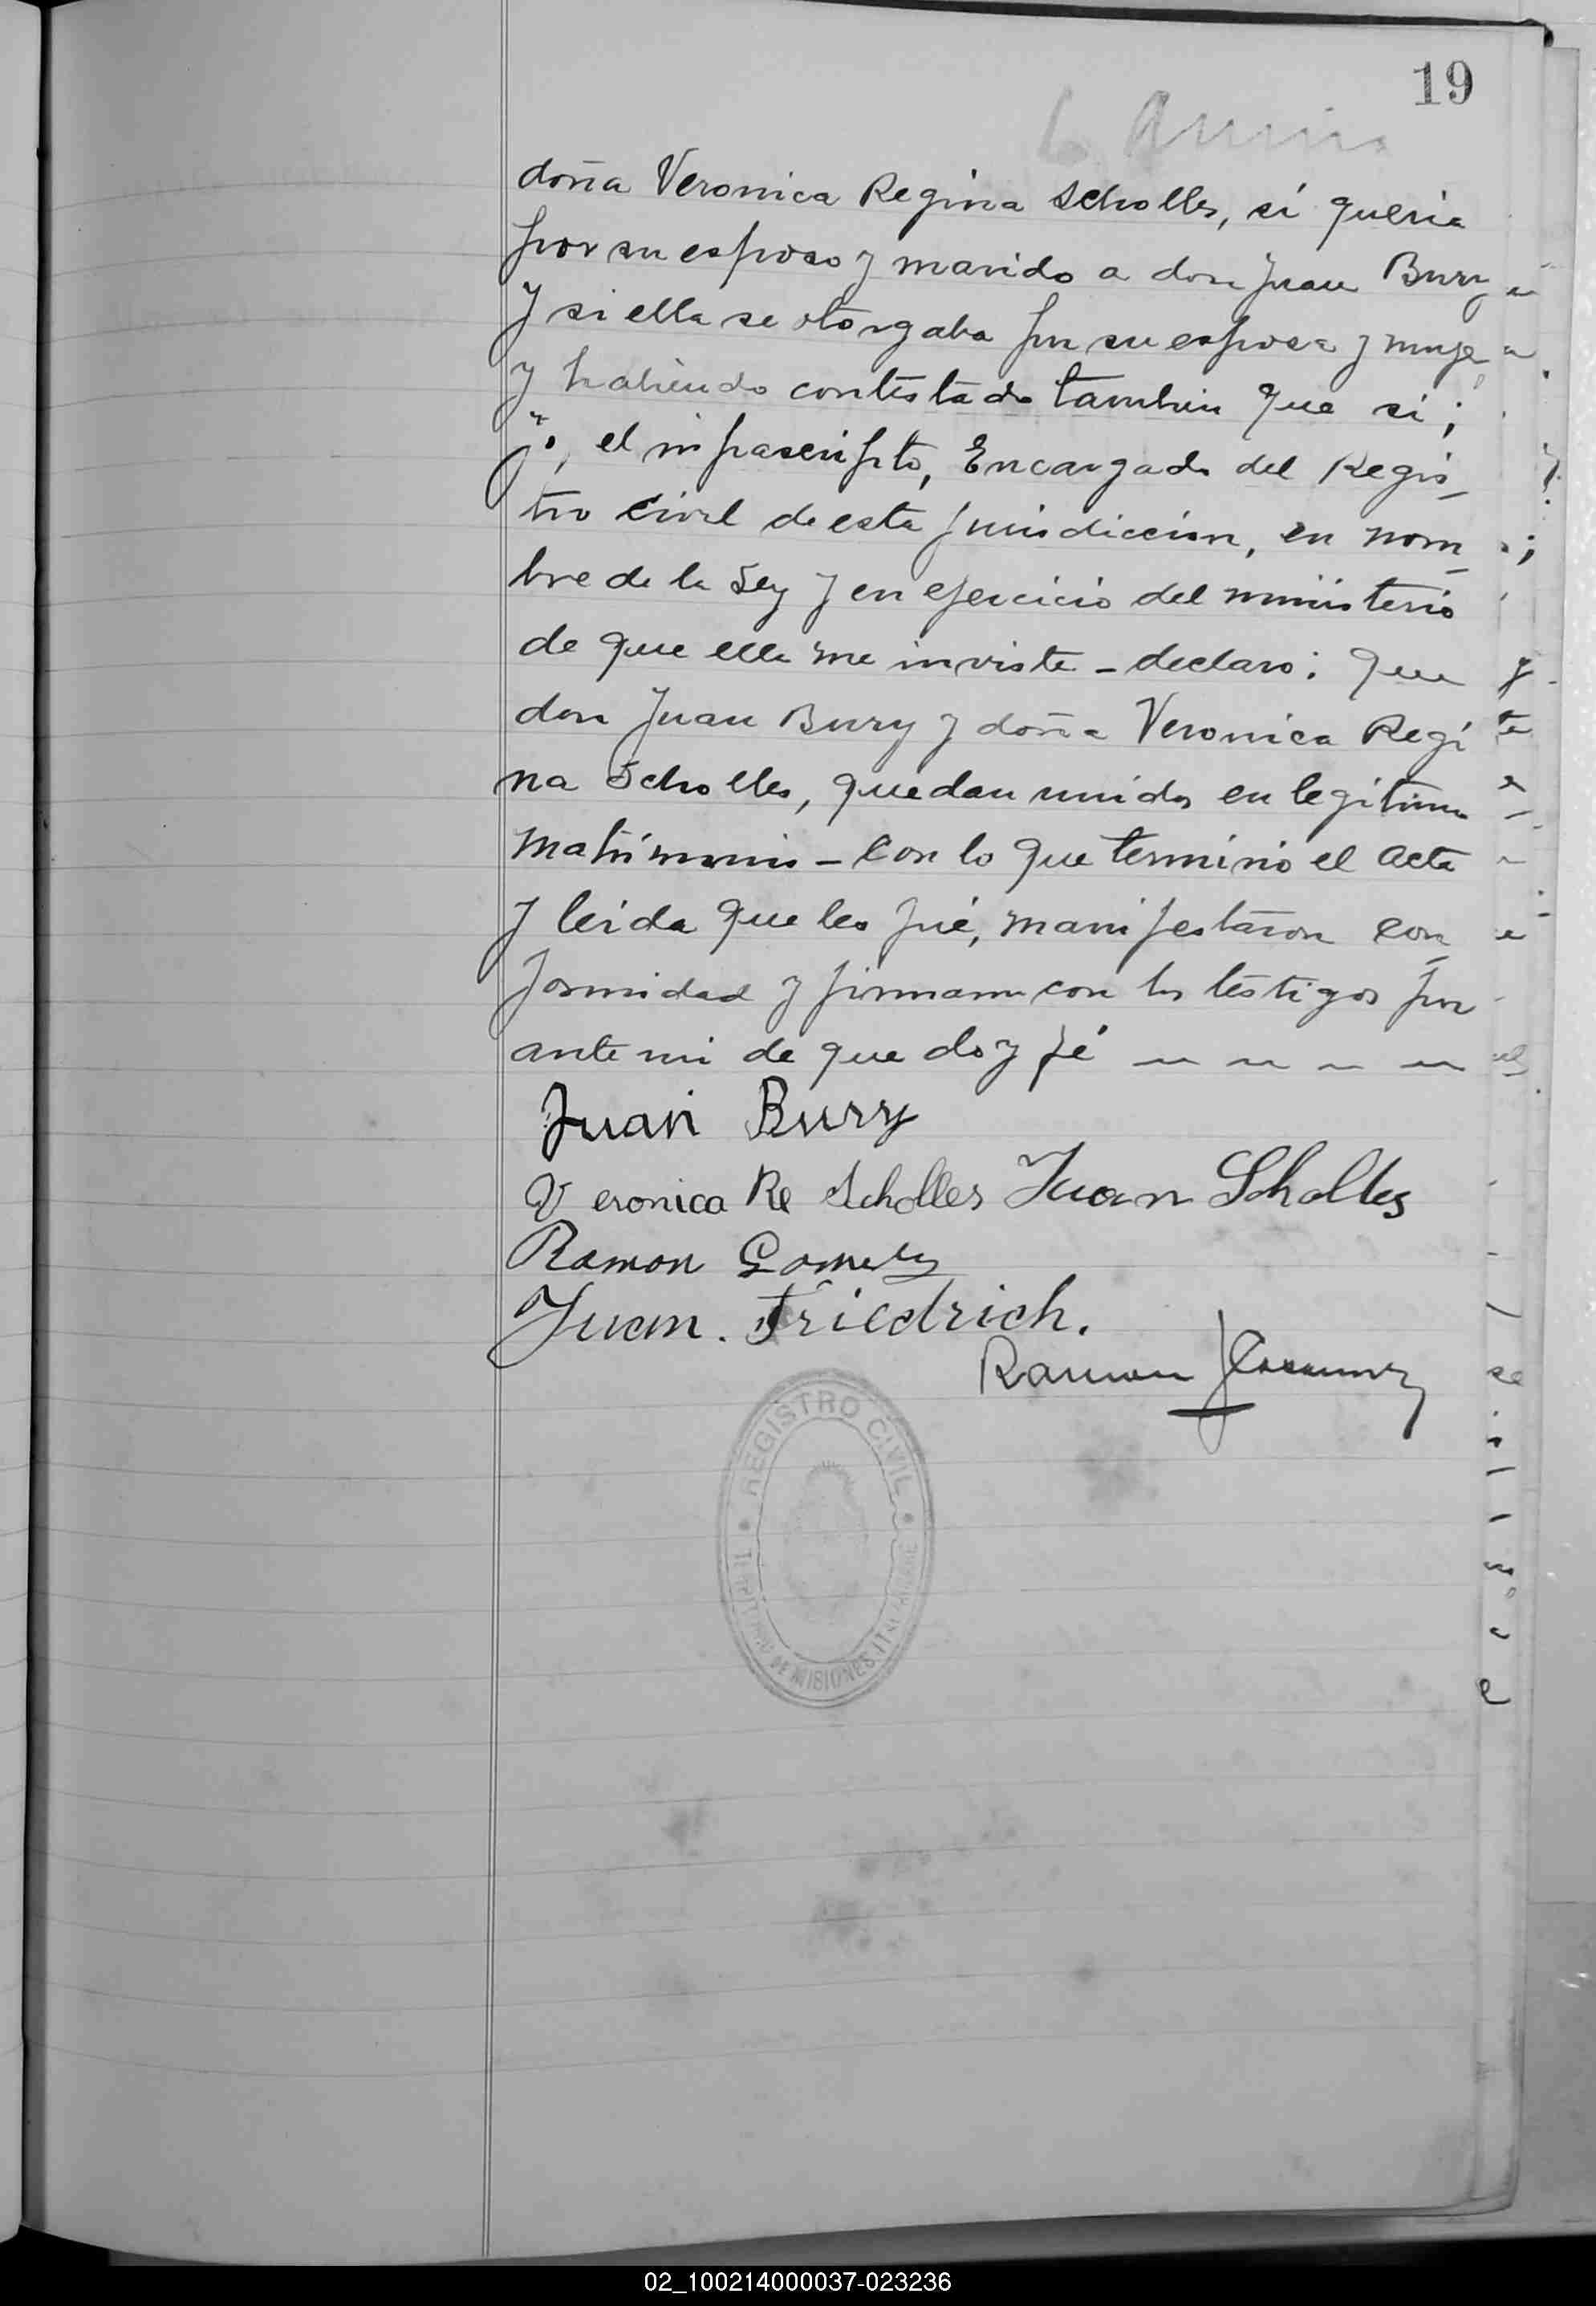 19
doña Veronica Regina Scholles, si queria
por su esposo y marido a don Juan Bury
y si ella se otorgaba por su esposa y mujer
y habiendo contestado tambien que si;
yo, el infrascripto, Encargado del Regis_
tro Civil de esta jurisdiccion, en nom_
bre de la Ley y en ejercicio del ministerio
de que ella me inviste - declaro: que
don Juan Bury y doña Veronica Regi
na Scholles, quedan unidos en legitimo
matrimonio - Con lo que terminó el acta
y leida que les fué, manifestaron con_
formidad y firmaron con los testigos por
ante mi de que doy fé
Juan Bury
Veronica Re Scholles Juan Scholles
Ramon Gomez
Juan. Friedrich.
Ramon
REGISTRO CIVIL
TERRITORIO DE MISIONES
02_100214000037-023236